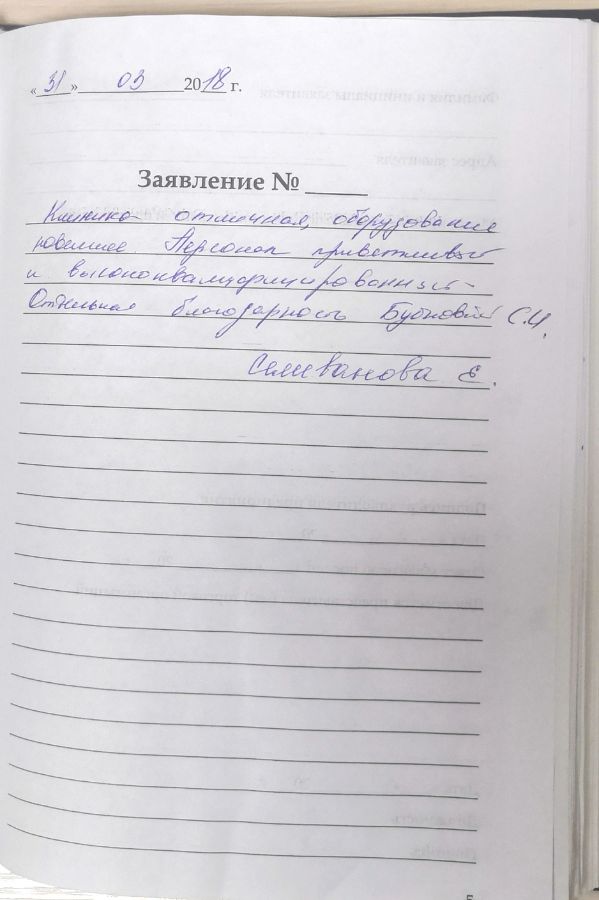 « 31 » 03 2018 г.
Заявление № ____
Клиника отличная, оборудование
новейшее Персонал приветливый
и высококвалифицированный
Отдельная благодарность Бубновой С.И.
Селиванова Е.